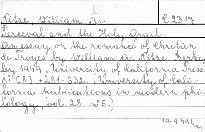 Nitze, William A. L 2317
Perceval and the Holy Grail.
An essay on the romance of Chrétien
de Troyes by William A. Nitze. Berke-
ley 1949, University of California Press.
8° (IV) + 281-332. (University of Cali-
fornia publications in modern phi-
lology vol. 28. n° 5.)